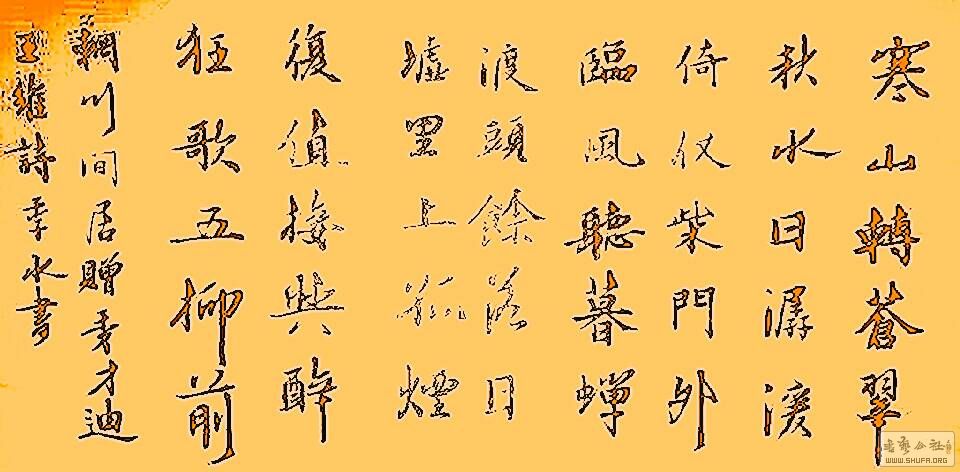 寒山轉蒼翠
秋水日潺湲
倚仗柴門外
臨風聽暮蟬
渡頭餘落日
墟里上孤煙
復值接輿醉
狂歌五柳前
輞川間居贈秀才迪
王維詩季水書
WWW.SHUFA.ORG